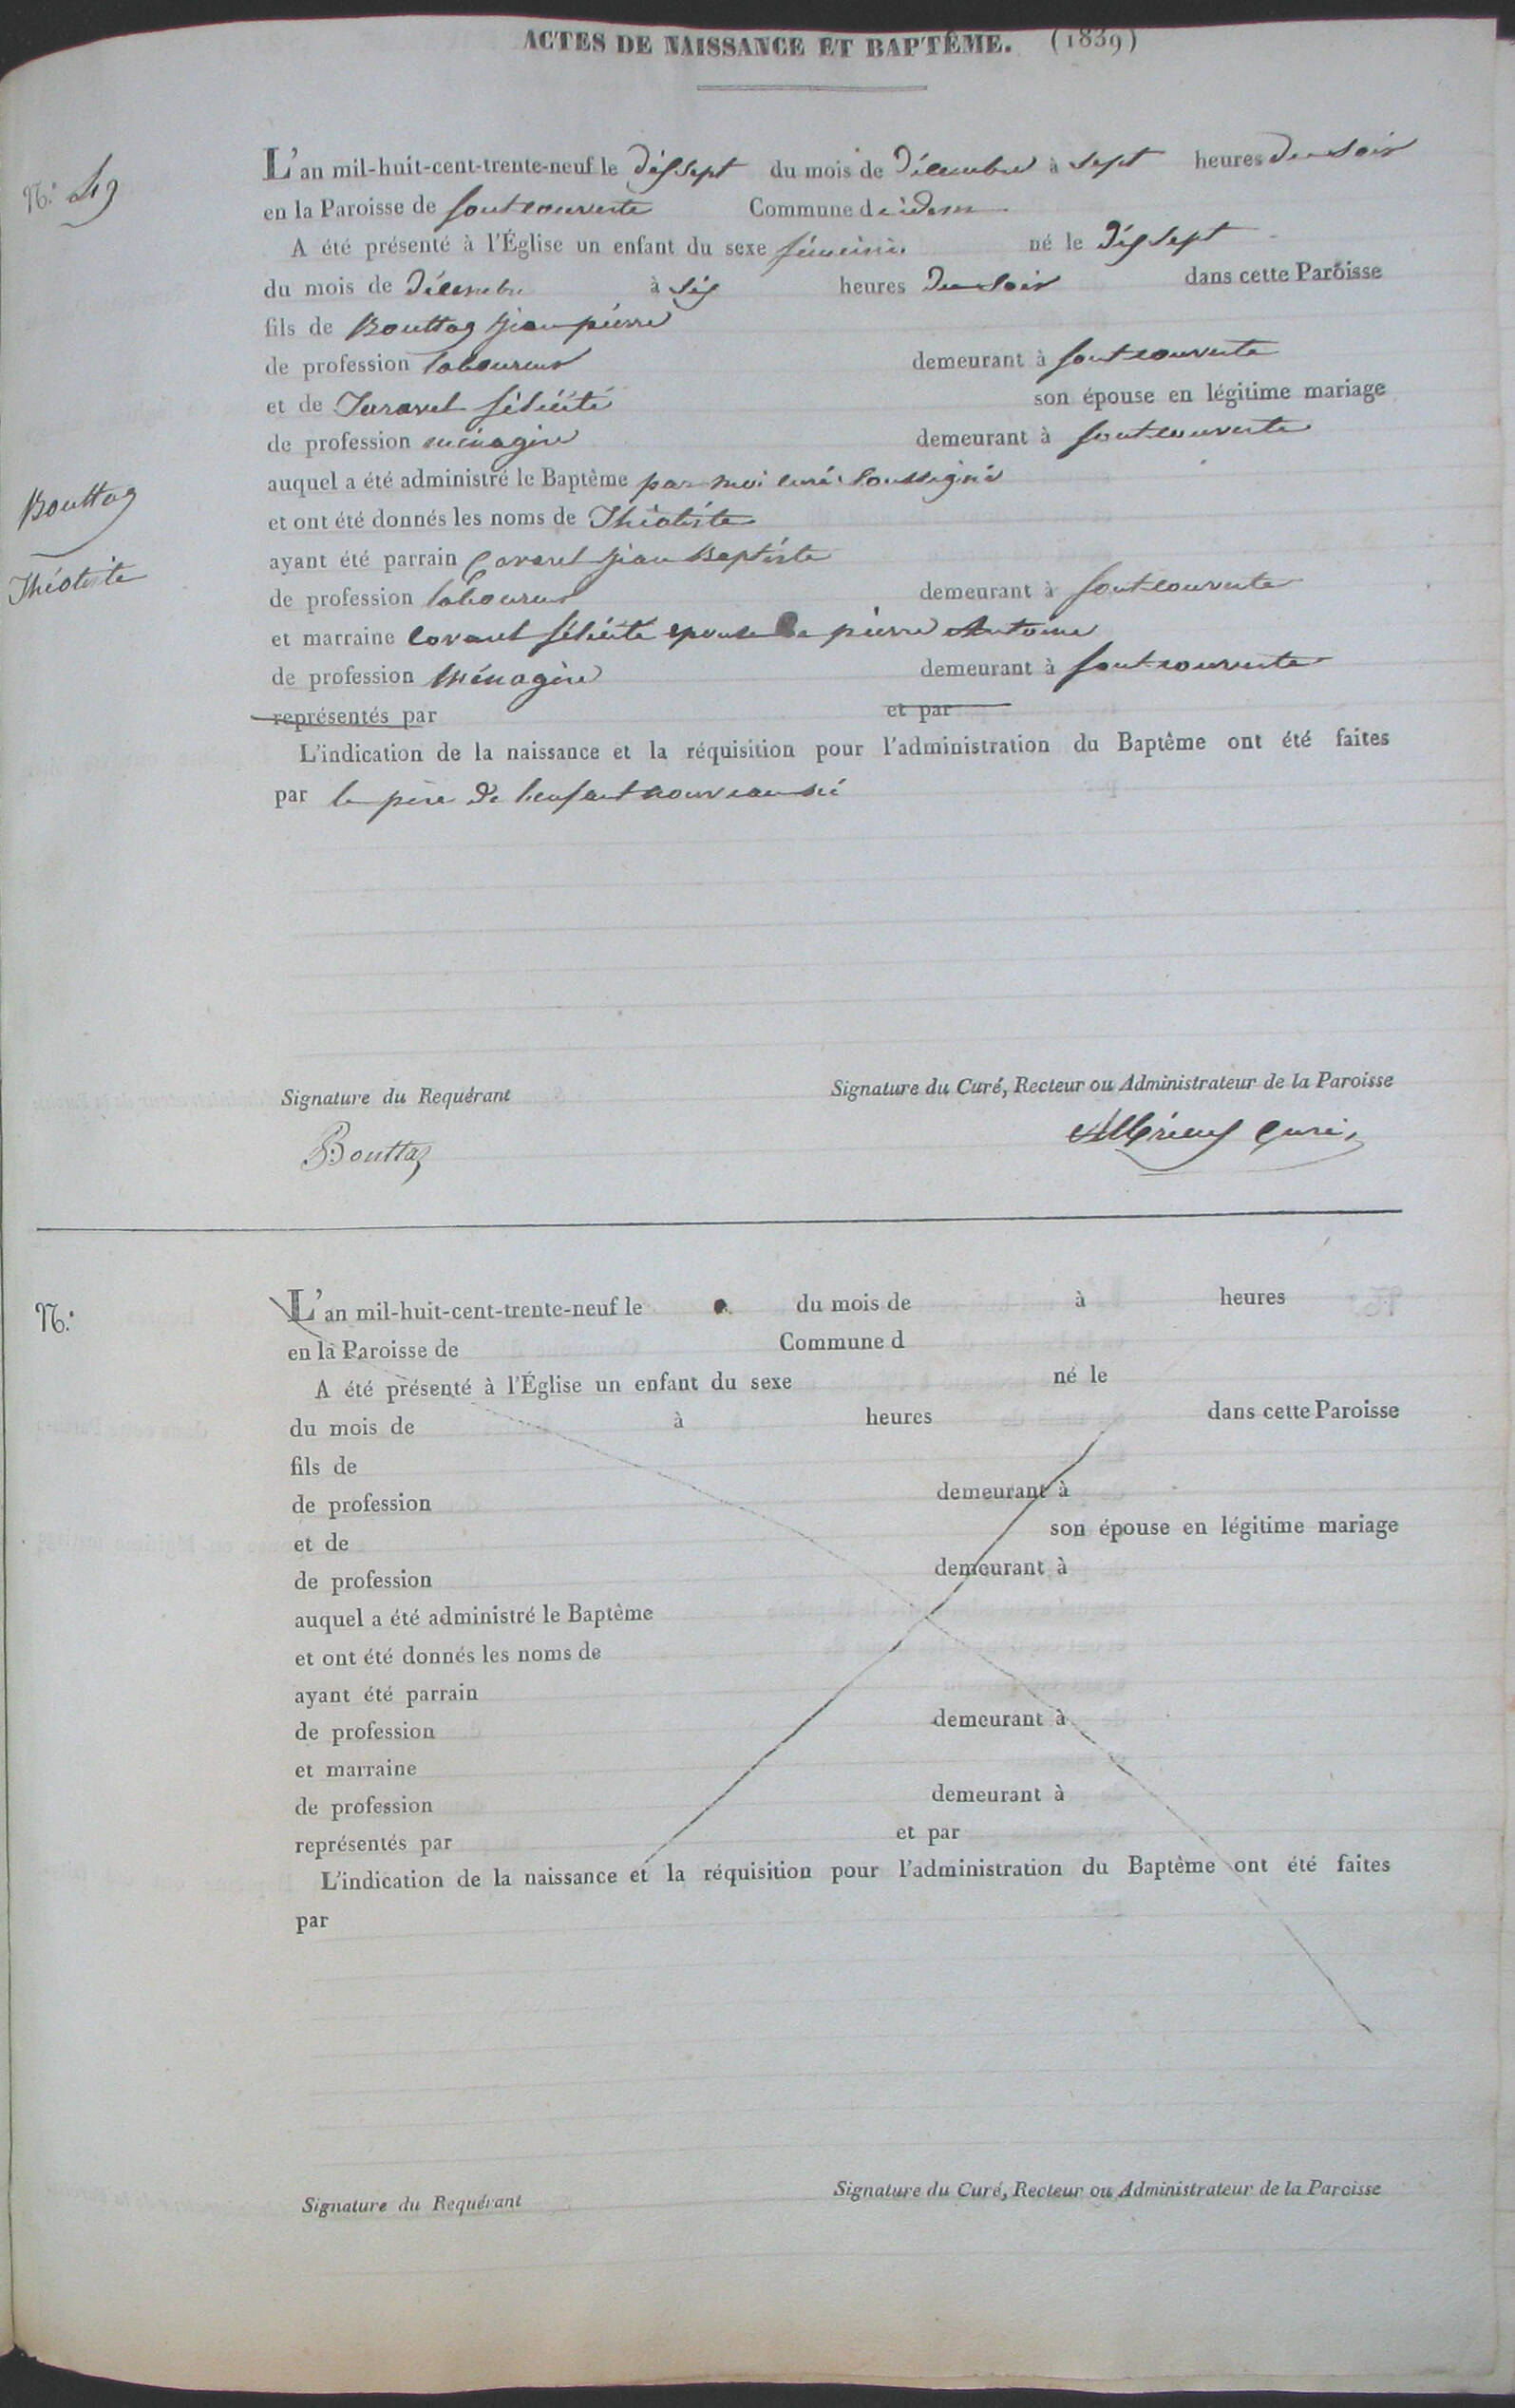 ACTES DE NAISSANCE ET BAPTÊME. (1839)
N.º 49
L'an mil-huit-cent-trente-neuf le dixsept du mois de décembre à sept heures du soir
en la Paroisse de fontcouverte Commune de idem
A été présenté à l'Église un enfant du sexe féminin né le dixsept
du mois de décembre à six heures du soir dans cette Paroisse
fils de Bouttaz jean pierre
de profession laboureur demeurant à fontcouverte
et de Taravel félicité son épouse en légitime mariage
de profession ménagère demeurant à fontcouverte
auquel a été administré le Baptême par moi curé soussigné
Bouttaz
et ont été donnés les noms de Théotiste
ayant été parrain Covarel jean Baptiste
Théotiste
de profession laboureur demeurant à fontcouverte
et marraine Covarel félicité epouse de pierre Antoine
de profession ménagère demeurant à fontcouverte
représentés par et par
L'indication de la naissance et la réquisition pour l'administration du Baptême ont été faites
par le père de l'enfant nouveau né
Signature du Requérant Signature du Curé, Recteur ou Administrateur de la Paroisse
Bouttaz curé
N.º
L'an mil-huit-cent-trente-neuf le du mois de à heures
en la Paroisse de Commune d
A été présenté à l'Église un enfant du sexe né le
du mois de à heures dans cette Paroisse
fils de
de profession demeurant à
et de son épouse en légitime mariage
de profession demeurant à
auquel a été administré le Baptême
et ont été donnés les noms de
ayant été parrain
de profession demeurant à
et marraine
de profession demeurant à
représentés par et par
L'indication de la naissance et la réquisition pour l'administration du Baptême ont été faites
par
Signature du Requérant Signature du Curé, Recteur ou Administrateur de la Paroisse